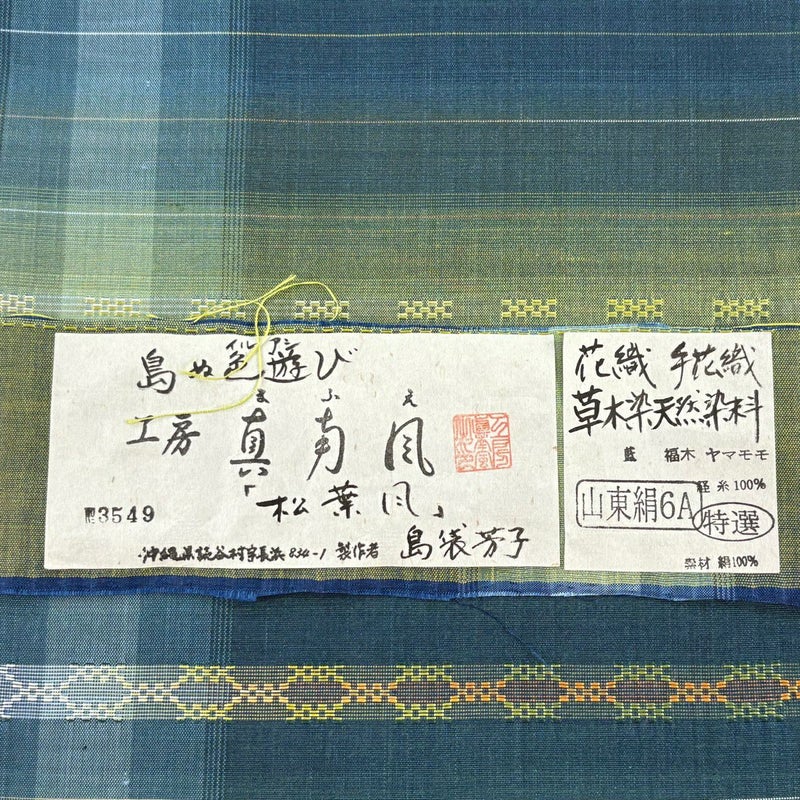 島ぬ色遊び
イル アシ
工房 真南風
まふえ
「松葉風」
3549
沖縄県読谷村字長浜834-1 製作者 島袋芳子
花織 手花織
草木染天然染料
藍 福木 ヤマモモ
経糸100%
山東絹6A
特選
素材 絹100%